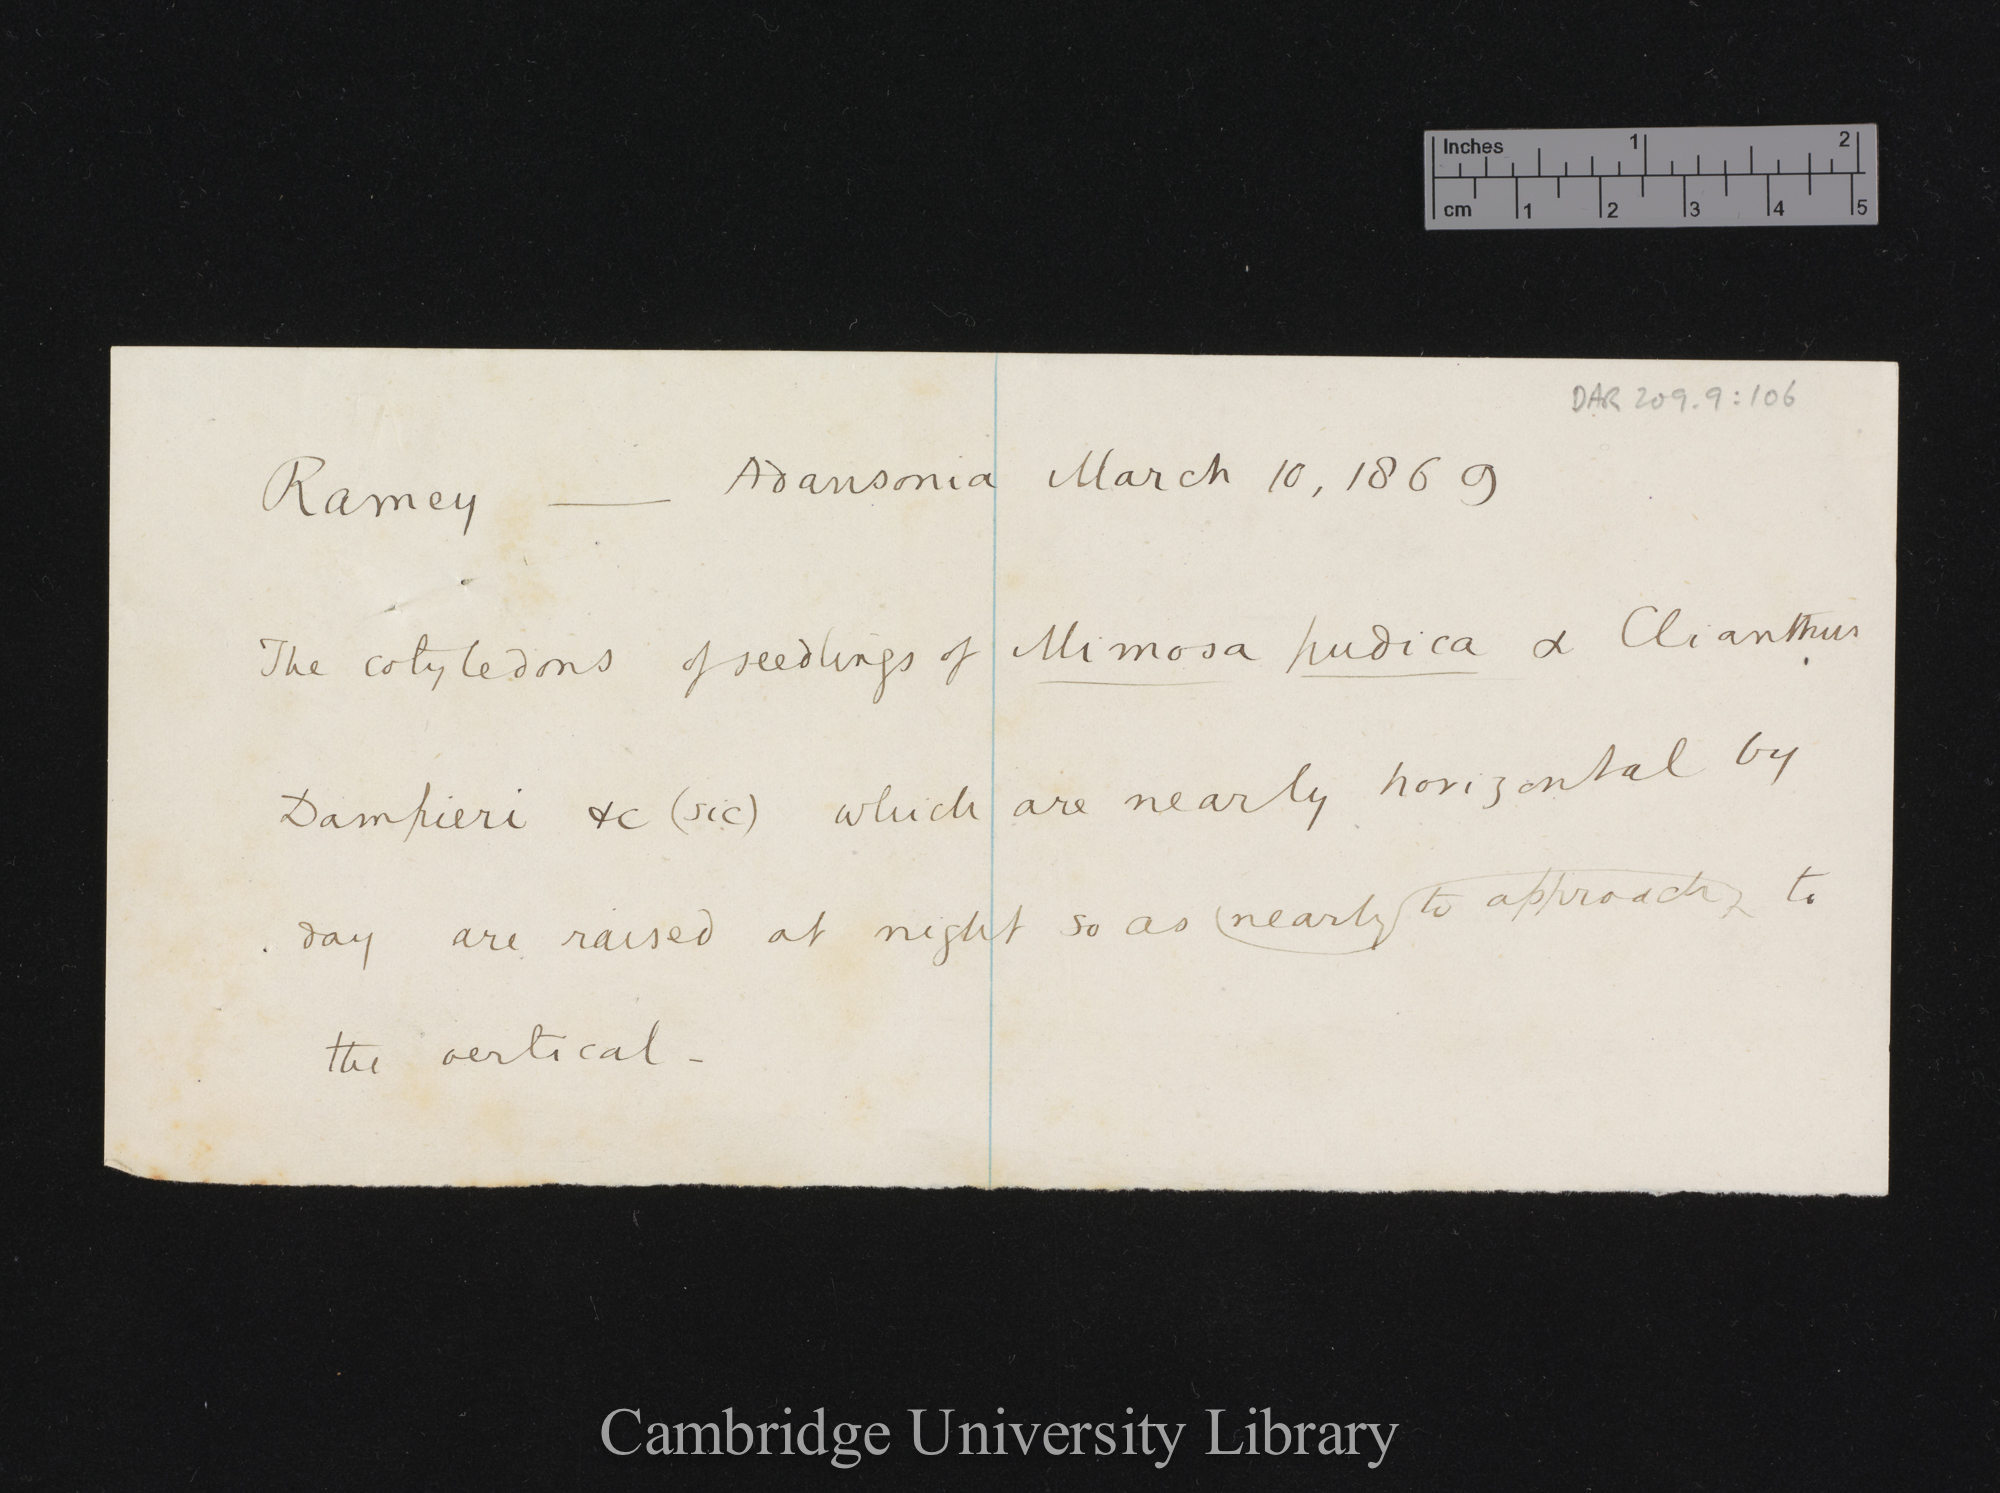 Inches 1 2
cm 1 2 3 4 5
DAR 209.9:106
Ramey — Adansonia March 10, 1869
The cotyledons of seedlings of Mimosa pudica & Clianthus
Dampieri &c (sic) which are nearly horizontal by
day are raised at night so as nearly to approach to
the vertical -
Cambridge University Library